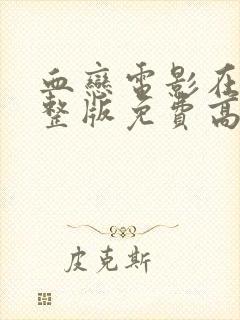 血戀電影在
整版免費高
皮克斯